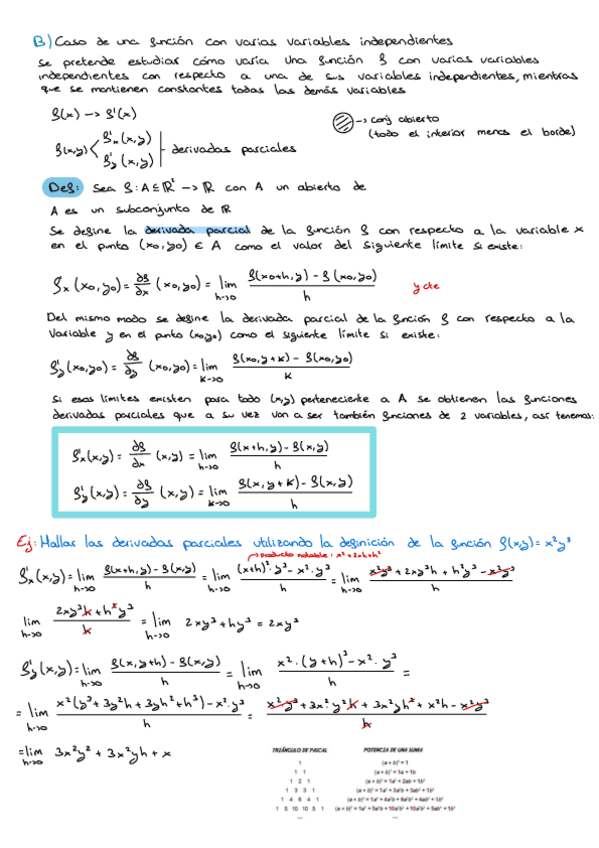 B) Caso de una función con varias variables independientes
se pretende estudiar cómo varía una función f con varias variables
independientes con respecto a una de sus variables independientes, mientras
que se mantienen constantes todas las demás variables
f(x) -> f'(x)
-> conj abierto
(todo el interior menos el borde)
f(x,y) < f'x (x,y) f'y (x,y) | derivadas parciales
Def: Sea f: A ⊆ R² -> R con A un abierto de
A es un subconjunto de R
Se define la derivada parcial de la función f con respecto a la variable x
en el punto (x0, y0) ∈ A como el valor del siguiente límite si existe:
f'x (x0, y0) = ∂f/∂x (x0, y0) = lim h->0 f(x0+h, y) - f(x0, y0) / h
y cte
Del mismo modo se define la derivada parcial de la función f con respecto a la
variable y en el punto (x0, y0) como el siguiente límite si existe:
f'y (x0, y0) = ∂f/∂y (x0, y0) = lim k->0 f(x0, y+k) - f(x0, y0) / k
Si esos límites existen para todo (x,y) perteneciente a A se obtienen las funciones
derivadas parciales que a su vez van a ser también funciones de 2 variables, así tenemos:
f'x (x,y) = ∂f/∂x (x,y) = lim h->0 f(x+h, y) - f(x,y) / h
f'y (x,y) = ∂f/∂y (x,y) = lim k->0 f(x, y+k) - f(x,y) / h
Ej: Hallar las derivadas parciales utilizando la definición de la función f(x,y) = x²y³
-> producto notable: x²+2xh+h²
f'x (x,y) = lim h->0 f(x+h, y) - f(x,y) / h = lim h->0 (x+h)²·y³ - x²·y³ / h = lim h->0 x²y³ + 2xy³h + h²y³ - x²y³ / h
lim h->0 2xy³h + h²y³ / h = lim h->0 2xy³ + hy³ = 2xy³
f'y (x,y) = lim h->0 f(x, y+h) - f(x,y) / h = lim h->0 x²·(y+h)³ - x²·y³ / h =
= lim h->0 x²(y³ + 3y²h + 3yh² + h³) - x²·y³ / h = x²y³ + 3x²y²h + 3x²yh² + x²h - x²y³ / h
= lim h->0 3x²y² + 3x²yh + x
TRIÁNGULO DE PASCAL
POTENCIA DE UNA SUMA
1
(a + b)⁰ = 1
1 1
(a + b)¹ = 1a + 1b
1 2 1
(a + b)² = 1a² + 2ab + 1b²
1 3 3 1
(a + b)³ = 1a³ + 3a²b + 3ab² + 1b³
1 4 6 4 1
(a + b)⁴ = 1a⁴ + 4a³b + 6a²b² + 4ab³ + 1b⁴
1 5 10 10 5 1
(a + b)⁵ = 1a⁵ + 5a⁴b + 10a³b² + 10a²b³ + 5ab⁴ + 1b⁵
...
...